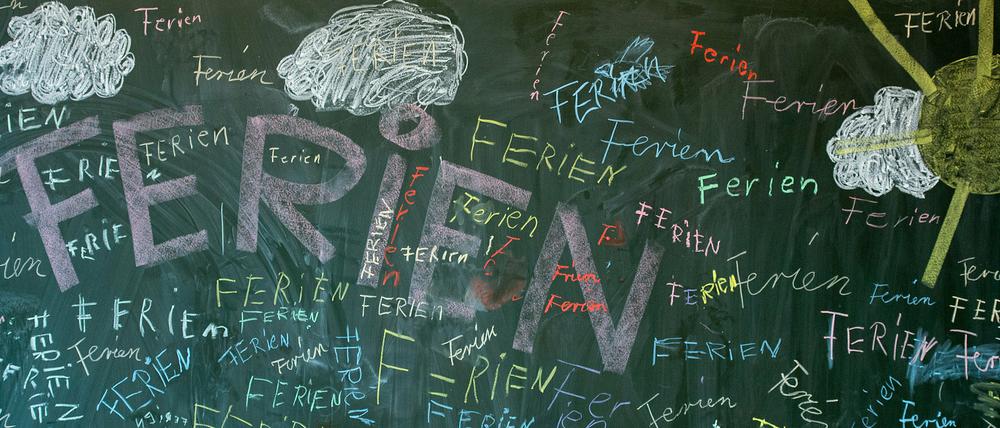 Ferien
FERiEN
Ferien
Ferien
Ferien
FERIEN
Ferien
FERiEN
Ferien
FERiEN
Ferien
FERiEN
Ferien
FERiEN
Ferien
Ferien
Ferien
Ferien
FERIEN
FERien
FERiEN
Ferien
FERiEN
FERiEN
FERIEN
FERIEN
FERiEN
Ferien
Ferien
FERiEn
FERiEN
Ferien
FERiEN
FERIEN
FERiEN
FERIEN
Ferien
Ferien
FERiEN
FERIEN
FERIEN
FERiEN
Ferien
Ferien
Ferien
FERIEN